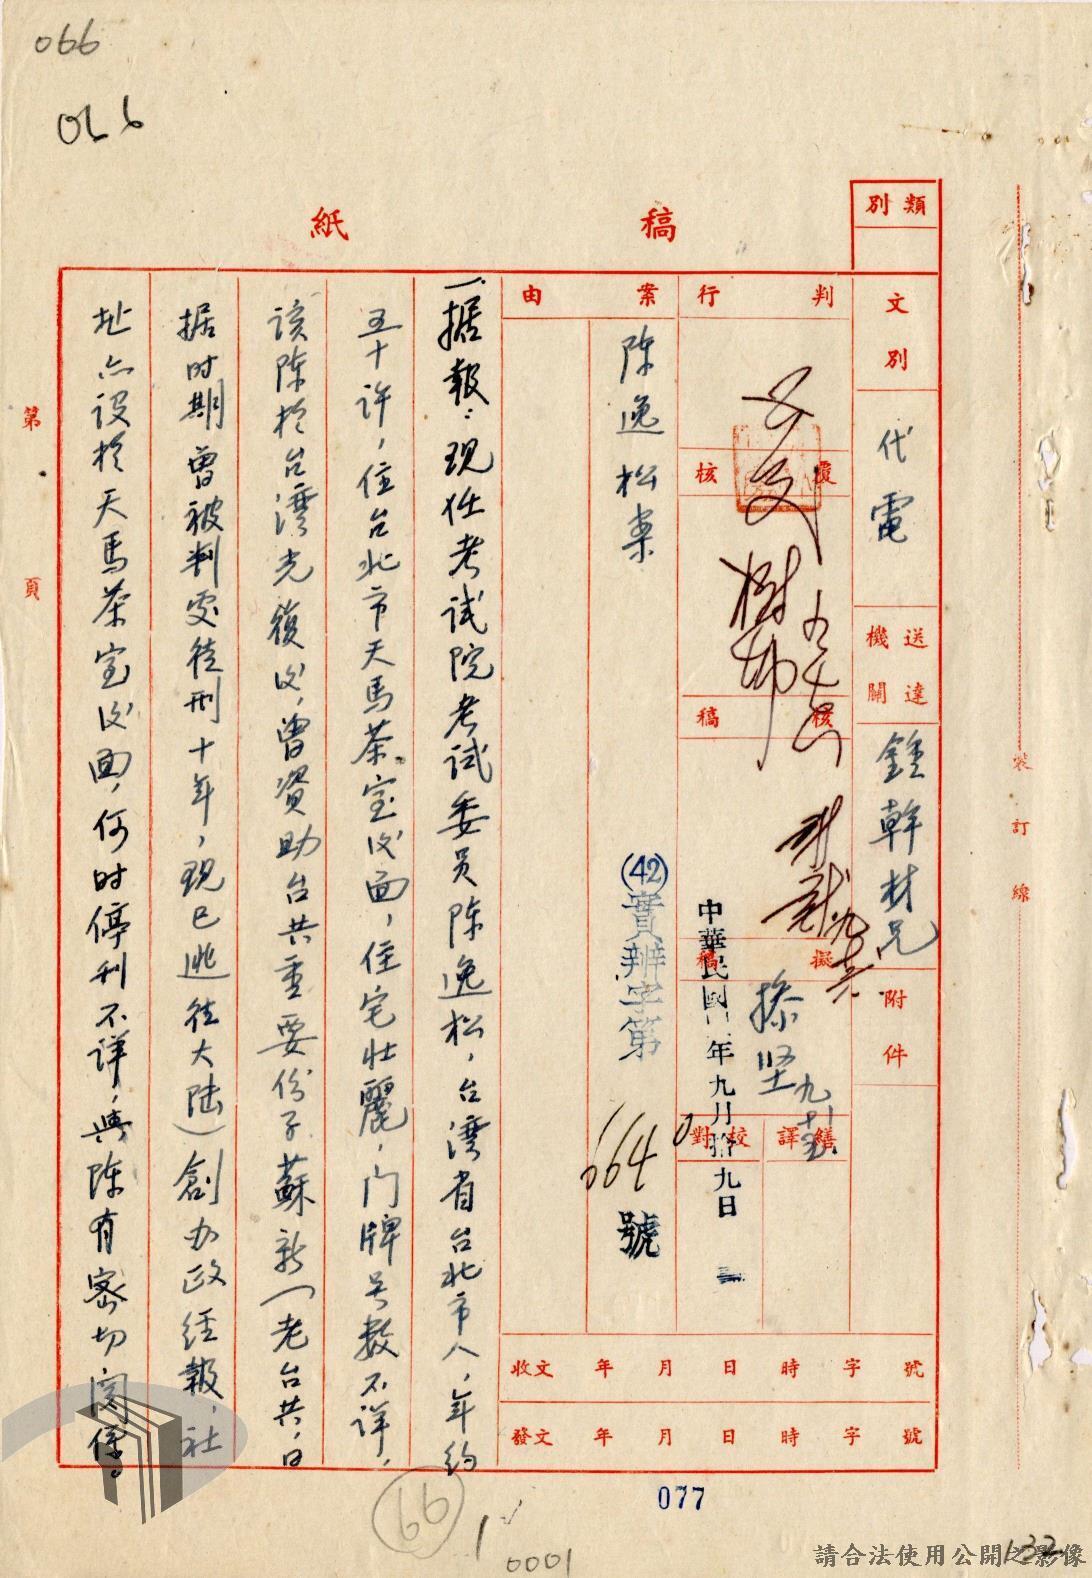 066
066
稿紙
類別
文別
代電
送達機關
鍾幹材兄
附件
判行
覆核
核稿
擬稿
繕譯
校對
中華民國 年九月拾九日
案由
陳逸松案
(42)實辦字第
664
號
收文 年 月 日 時 字 號
發文 年 月 日 時 字 號
一、据報:現任考试院考試委员陈逸松,台湾省台北市人,年约
五十许,住台北市天馬茶室后面,住宅壮麗,门牌号数不详,
该陈於台湾光復后,曾資助台共重要份子蘇新(老台共,日
据时期曾被判處徒刑十年,現已逃往大陆)創办政经報,社
址亦设於天馬茶室后面,何时停刊不详,與陈有密切関係。
第 頁
裝訂線
66
077
0001
132
請合法使用公開之影像